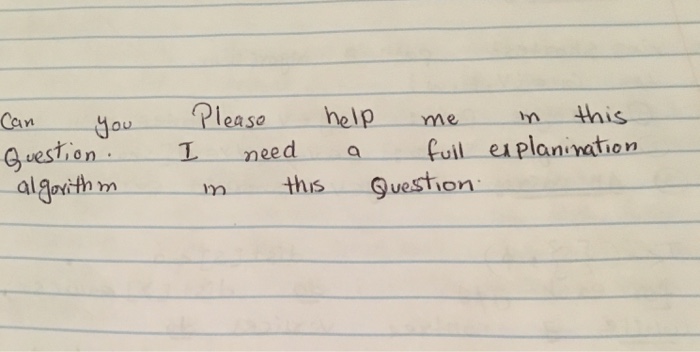 Can you Please help me in this
Question. I need a full explanination
algorithm in this Question.